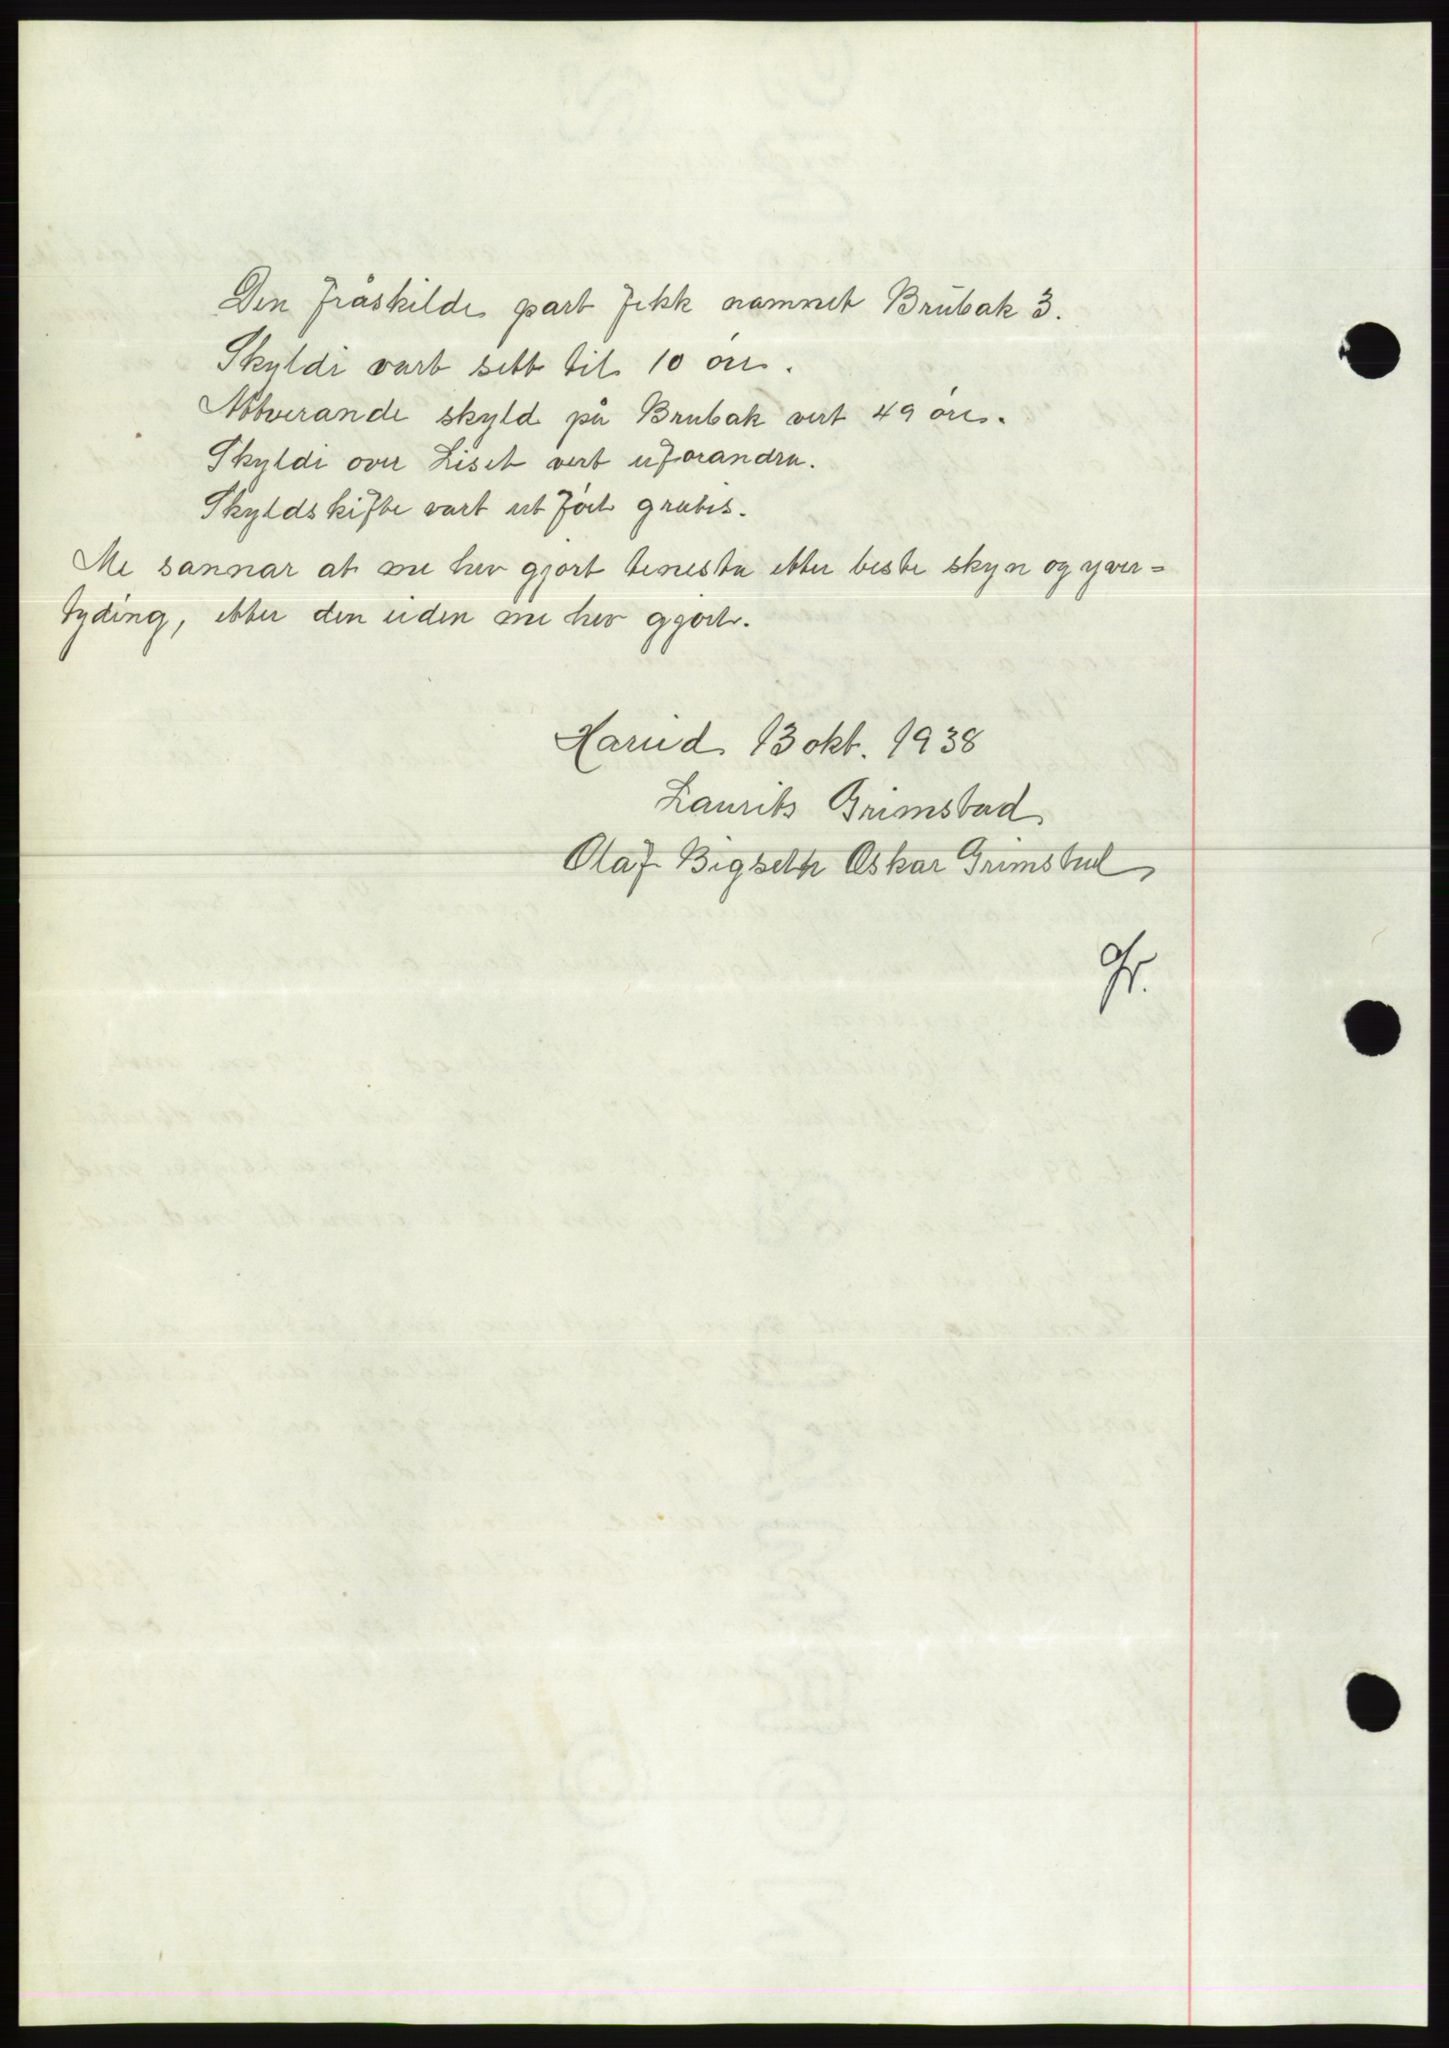 Den fråskilde part fekk namnet Brubak 3.
Skyldi vart sett til 10 öre.
Notverande skyld på Brubak vert 49 öre.
Skyldi over Liset vert uforandra.
Skyldskifte vart utfört gratis.
Me sannar at me hev gjort tenesta etter beste skyn og yver=
tyding, etter den eiden me hev gjort.
Hareid 13 okt. 1938
Laurits Grimstad
Olaf Bigseth Oskar Grimstad